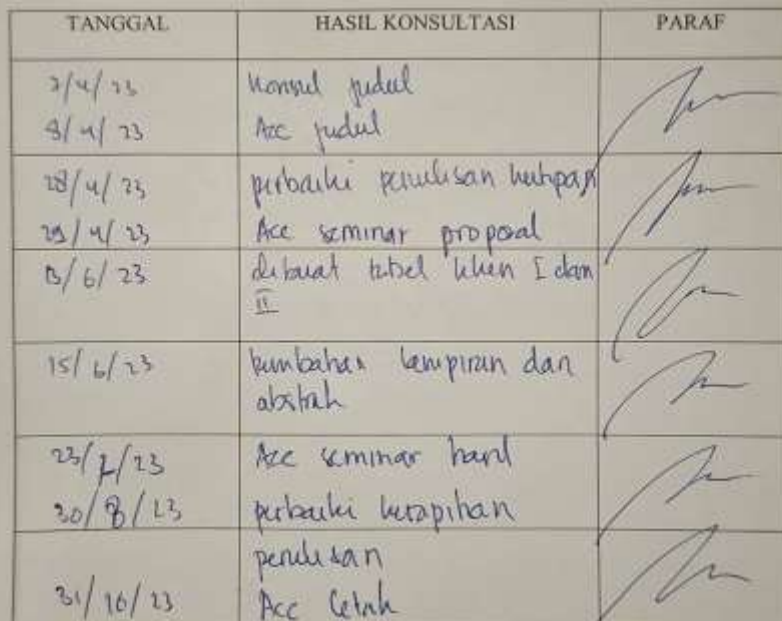 TANGGAL HASIL KONSULTASI PARAF
7/4/23 Konsul judul
8/4/23 Acc judul
28/4/23 perbaiki penulisan kutipan
29/4/23 Acc seminar proposal
13/6/23 dibuat tabel klien I dan
II
15/6/23 tambahan lampiran dan
abstrak
23/7/23 Acc seminar hasil
30/8/23 perbaiki kerapihan
penulisan
31/10/23 Acc Cetak